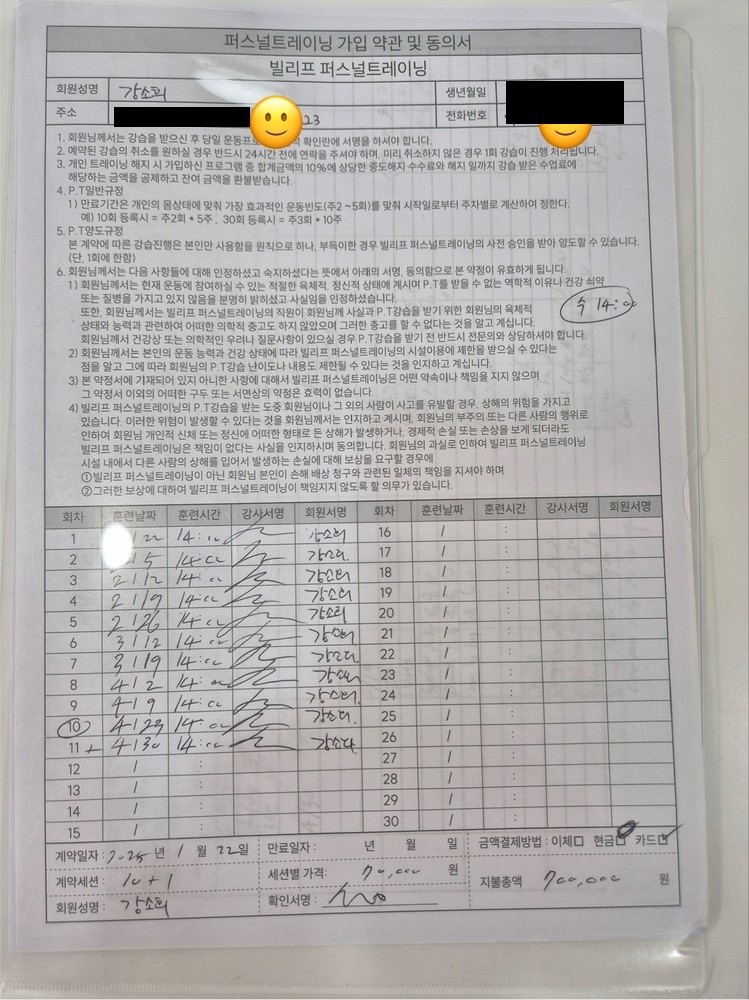 퍼스널트레이닝 가입 약관 및 동의서
빌리프 퍼스널트레이닝
회원성명 강소희 생년월일
주소 23 전화번호
1. 회원님께서는 강습을 받으신 후 당일 운동프로 확인란에 서명을 하셔야 합니다.
2. 예약된 강습의 취소를 원하실 경우 반드시 24시간 전에 연락을 주셔야 하며, 미리 취소하지 않은 경우 1회 강습이 진행 처리됩니다.
3. 개인 트레이닝 해지 시 가입하신 프로그램 중 합계금액의 10%에 상당한 중도해지 수수료와 해지 일까지 강습 받은 수업료에
해당하는 금액을 공제하고 잔여 금액을 환불받습니다.
4. P.T일반규정
1) 만료기간은 개인의 몸상태에 맞춰 가장 효과적인 운동빈도(주2 ~5회)를 맞춰 시작일로부터 주차별로 계산하여 정한다.
예) 10회 등록시 = 주2회 * 5주 , 30회 등록시 = 주3회 * 10주
5. P.T양도규정
본 계약에 따른 강습진행은 본인만 사용함을 원칙으로 하나, 부득이한 경우 빌리프 퍼스널트레이닝의 사전 승인을 받아 양도할 수 있습니다.
(단, 1회에 한함)
6. 회원님께서는 다음 사항들에 대해 인정하셨고 숙지하셨다는 뜻에서 아래의 서명, 동의함으로 본 약정이 유효하게 됩니다.
1) 회원님께서는 현재 운동에 참여하실 수 있는 적절한 육체적, 정신적 상태에 계시며 P.T를 받을 수 없는 역학적 이유나 건강 쇠약
또는 질병을 가지고 있지 않음을 분명히 밝히셨고 사실임을 인정하셨습니다.
수 14:00
또한, 회원님께서는 빌리프 퍼스널트레이닝의 직원이 회원님께 사실과 P.T강습을 받기 위한 회원님의 육체적
상태와 능력과 관련하여 어떠한 의학적 충고도 하지 않았으며 그러한 충고를 할 수 없다는 것을 알고 계십니다.
회원님께서 건강상 또는 의학적인 우려나 질문사항이 있으실 경우 P.T강습을 받기 전 반드시 전문의와 상담하셔야 합니다.
2) 회원님께서는 본인의 운동 능력과 건강 상태에 따라 빌리프 퍼스널트레이닝의 시설이용에 제한을 받으실 수 있다는
점을 알고 그에 따라 회원님의 P.T강습 난이도나 내용도 제한될 수 있다는 것을 인지하고 계십니다.
3) 본 약정서에 기재되어 있지 아니한 사항에 대해서 빌리프 퍼스널트레이닝은 어떤 약속이나 책임을 지지 않으며
그 약정서 이외의 어떠한 구두 또는 서면상의 약정은 효력이 없습니다.
4) 빌리프 퍼스널트레이닝의 P.T강습을 받는 도중 회원님이나 그 외의 사람이 사고를 유발할 경우, 상해의 위험을 가지고
있습니다. 이러한 위험이 발생할 수 있다는 것을 회원님께서는 인지하고 계시며, 회원님의 부주의 또는 다른 사람의 행위로
인하여 회원님 개인적 신체 또는 정신에 어떠한 형태로 든 상해가 발생하거나, 경제적 손실 또는 손상을 보게 되더라도
빌리프 퍼스널트레이닝은 책임이 없다는 사실을 인지하시며 동의합니다. 회원님의 과실로 인하여 빌리프 퍼스널트레이닝
시설 내에서 다른 사람의 상해를 입어서 발생하는 손실에 대해 보상을 요구할 경우에
①빌리프 퍼스널트레이닝이 아닌 회원님 본인이 손해 배상 청구와 관련된 일체의 책임을 지셔야 하며
②그러한 보상에 대하여 빌리프 퍼스널트레이닝이 책임지지 않도록 할 의무가 있습니다.
회차 훈련날짜 훈련시간 강사서명 회원서명 회차 훈련날짜 훈련시간 강사서명 회원서명
1 / 22 14:00 강소희 16 / :
2 / 5 14:00 강소희. 17 / :
3 2/12 14:00 강소희 18 / :
4 2/19 14:00 강소희 19 / :
5 2/26 14:00 강소희 20 / :
6 3/12 14:00 강소희 21 / :
7 3/19 14:00 강소희. 22 / :
8 4/2 14:00 강소희 23 / :
9 4/9 14:00 강소희. 24 / :
10 4/29 14:00 강소희. 25 / :
11 + 4/30 14:00 강소희 26 / :
12 / : 27 / :
13 / : 28 / :
14 / : 29 / :
15 / : 30 / :
계약일자 : 2025 년 1 월 22일 만료일자 : 년 월 일 금액결제방법 : 이체□ 현금□ 카드☑
계약세션 : 10+1 세션별 가격: 70,000 원 지불총액 700,000 원
회원성명 : 강소희 확인서명 :